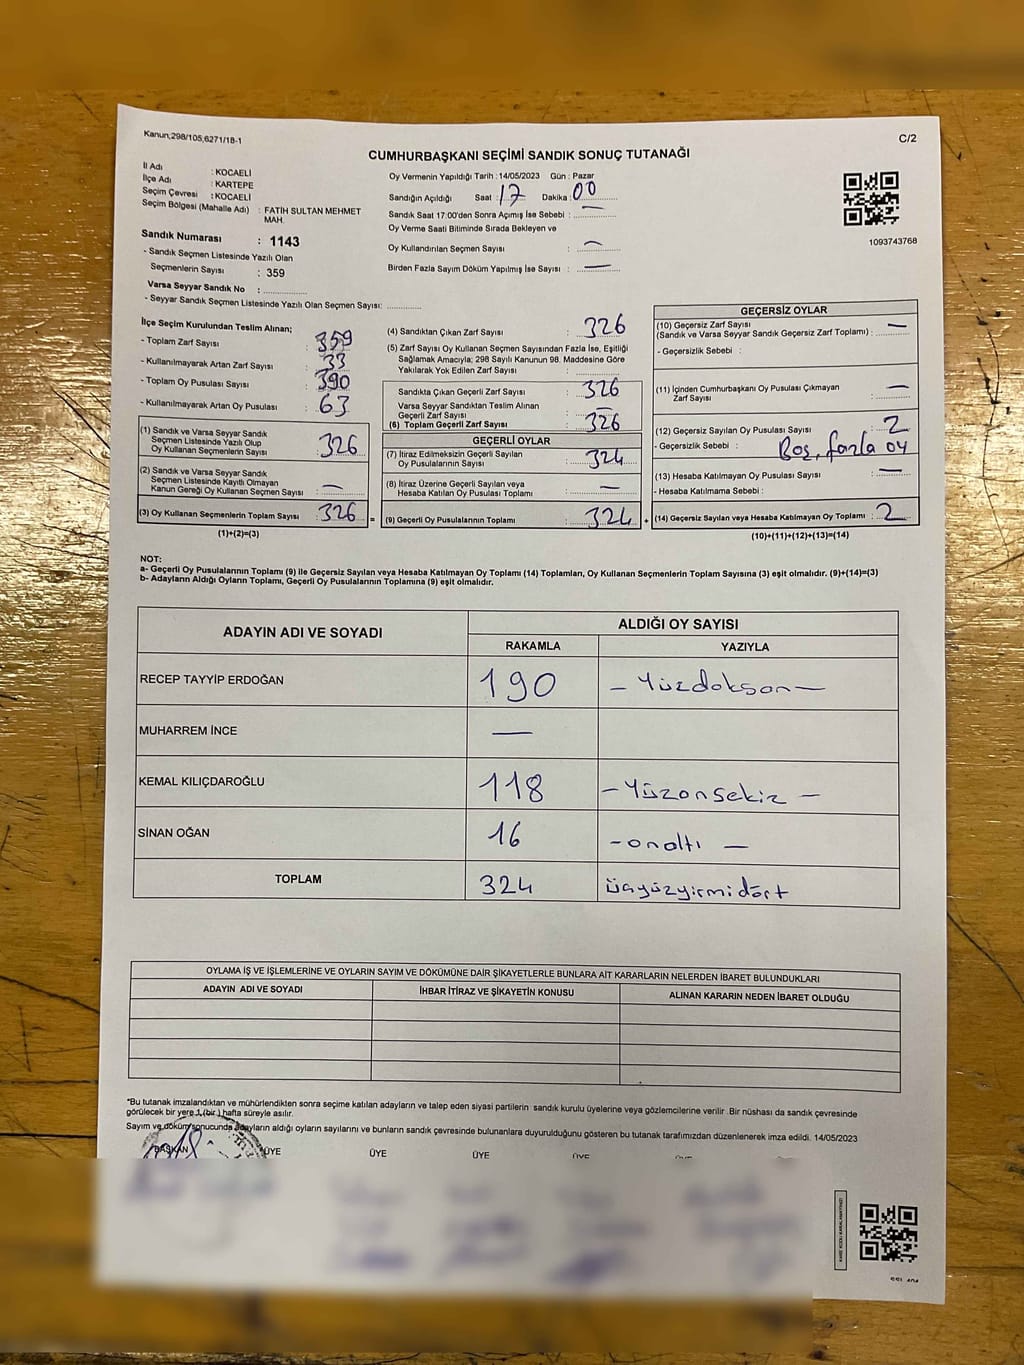 Kanun;298/105,6271/18-1
C/2
CUMHURBAŞKANI SEÇİMİ SANDIK SONUÇ TUTANAĞI
İl Adı : KOCAELİ
İlçe Adı : KARTEPE
Seçim Çevresi : KOCAELİ
Seçim Bölgesi (Mahalle Adı) : FATİH SULTAN MEHMET
MAH.
Sandık Numarası : 1143
- Sandık Seçmen Listesinde Yazılı Olan
Seçmenlerin Sayısı : 359
Varsa Seyyar Sandık No : ................
- Seyyar Sandık Seçmen Listesinde Yazılı Olan Seçmen Sayısı: ............
Oy Vermenin Yapıldığı Tarih : 14/05/2023 Gün : Pazar
Sandığın Açıldığı Saat : 17 Dakika : 00
Sandık Saat 17:00'den Sonra Açımış İse Sebebi : —
Oy Verme Saati Bitiminde Sırada Bekleyen ve
Oy Kullandırılan Seçmen Sayısı : —
Birden Fazla Sayım Döküm Yapılmış İse Sayısı : —
1093743768
İlçe Seçim Kurulundan Teslim Alınan;
- Toplam Zarf Sayısı : 359
- Kullanılmayarak Artan Zarf Sayısı : 33
- Toplam Oy Pusulası Sayısı : 390
- Kullanılmayarak Artan Oy Pusulası : 63
(1) Sandık ve Varsa Seyyar Sandık
Seçmen Listesinde Yazılı Olup
Oy Kullanan Seçmenlerin Sayısı : 326
(2) Sandık ve Varsa Seyyar Sandık
Seçmen Listesinde Kayıtlı Olmayan
Kanun Gereği Oy Kullanan Seçmen Sayısı : —
(3) Oy Kullanan Seçmenlerin Toplam Sayısı : 326 =
(1)+(2)=(3)
(4) Sandıktan Çıkan Zarf Sayısı : 326
(5) Zarf Sayısı Oy Kullanan Seçmen Sayısından Fazla İse, Eşitliği
Sağlamak Amacıyla; 298 Sayılı Kanunun 98. Maddesine Göre
Yakılarak Yok Edilen Zarf Sayısı :
Sandıkta Çıkan Geçerli Zarf Sayısı : 326
Varsa Seyyar Sandıktan Teslim Alınan
Geçerli Zarf Sayısı : —
(6) Toplam Geçerli Zarf Sayısı : 326
GEÇERLİ OYLAR
(7) İtiraz Edilmeksizin Geçerli Sayılan
Oy Pusulalarının Sayısı : 324
(8) İtiraz Üzerine Geçerli Sayılan veya
Hesaba Katılan Oy Pusulası Toplamı : —
(9) Geçerli Oy Pusulalarının Toplamı : 324 +
GEÇERSİZ OYLAR
(10) Geçersiz Zarf Sayısı
(Sandık ve Varsa Seyyar Sandık Geçersiz Zarf Toplamı) : —
- Geçersizlik Sebebi :
(11) İçinden Cumhurbaşkanı Oy Pusulası Çıkmayan
Zarf Sayısı : —
(12) Geçersiz Sayılan Oy Pusulası Sayısı : 2
- Geçersizlik Sebebi : Boş, fazla oy
(13) Hesaba Katılmayan Oy Pusulası Sayısı : —
- Hesaba Katılmama Sebebi :
(14) Geçersiz Sayılan veya Hesaba Katılmayan Oy Toplamı : 2
(10)+(11)+(12)+(13)=(14)
NOT:
a- Geçerli Oy Pusulalarının Toplamı (9) ile Geçersiz Sayılan veya Hesaba Katılmayan Oy Toplamı (14) Toplamları, Oy Kullanan Seçmenlerin Toplam Sayısına (3) eşit olmalıdır. (9)+(14)=(3)
b- Adayların Aldığı Oyların Toplamı, Geçerli Oy Pusulalarının Toplamına (9) eşit olmalıdır.
ADAYIN ADI VE SOYADI
ALDIĞI OY SAYISI
RAKAMLA YAZIYLA
RECEP TAYYİP ERDOĞAN 190 - Yüzdoksan -
MUHARREM İNCE —
KEMAL KILIÇDAROĞLU 118 - Yüzonsekiz -
SİNAN OĞAN 16 - onaltı -
TOPLAM 324 üçyüzyirmidört
OYLAMA İŞ VE İŞLEMLERİNE VE OYLARIN SAYIM VE DÖKÜMÜNE DAİR ŞİKAYETLERLE BUNLARA AİT KARARLARIN NELERDEN İBARET BULUNDUKLARI
ADAYIN ADI VE SOYADI İHBAR İTİRAZ VE ŞİKAYETİN KONUSU ALINAN KARARIN NEDEN İBARET OLDUĞU
*Bu tutanak imzalandıktan ve mühürlendikten sonra seçime katılan adayların ve talep eden siyasi partilerin sandık kurulu üyelerine veya gözlemcilerine verilir. Bir nüshası da sandık çevresinde
görülecek bir yere 1 (bir) hafta süreyle asılır.
Sayım ve döküm sonucunda adayların aldığı oyların sayılarını ve bunların sandık çevresinde bulunanlara duyurulduğunu gösteren bu tutanak tarafımızdan düzenlenerek imza edildi. 14/05/2023
BAŞKAN ÜYE ÜYE ÜYE ÜYE